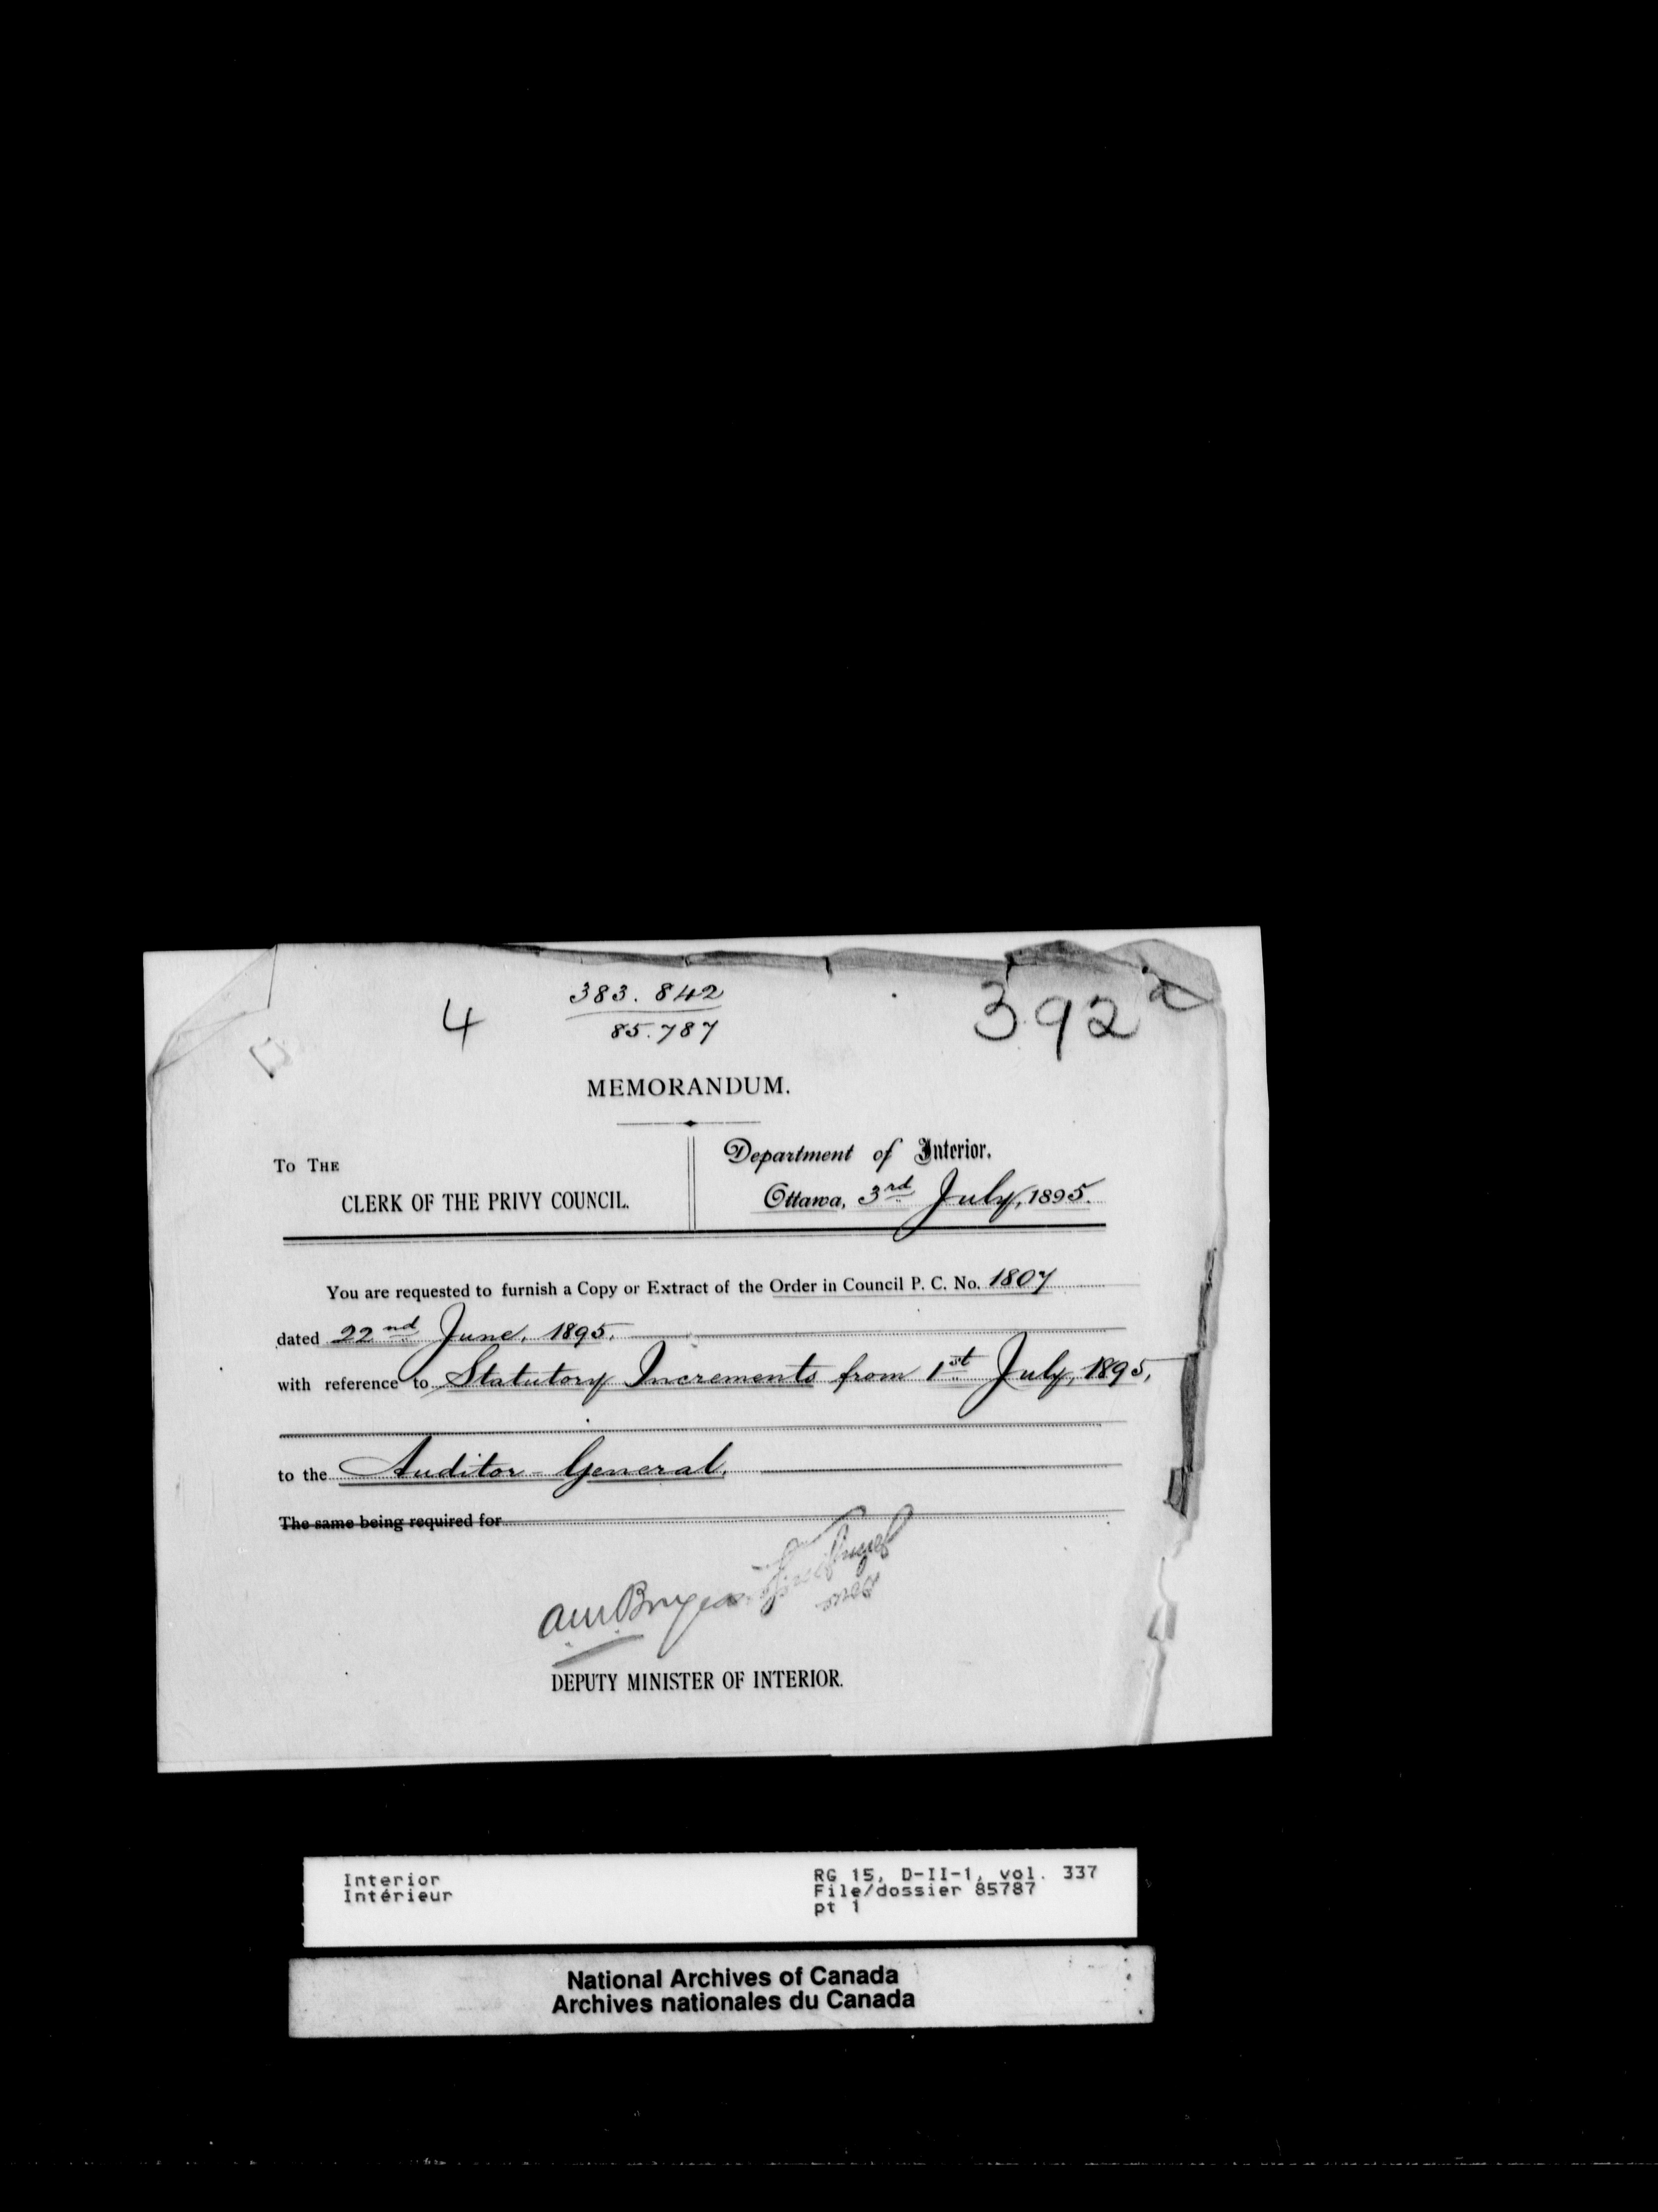 4
383.842
85.787
392
MEMORANDUM.
TO THE
CLERK OF THE PRIVY COUNCIL.
Department of Interior.
Ottawa, 3rd July, 1895.
You are requested to furnish a Copy or Extract of the Order in Council P. C. No. 1807
dated 22nd June, 1895.
with reference to Statutory Increments from 1st July, 1895,
to the Auditor-General.
The same being required for
DEPUTY MINISTER OF INTERIOR.
Interior
Intérieur
RG 15, D-II-1, vol. 337
File/dossier 85787
pt 1
National Archives of Canada
Archives nationales du Canada